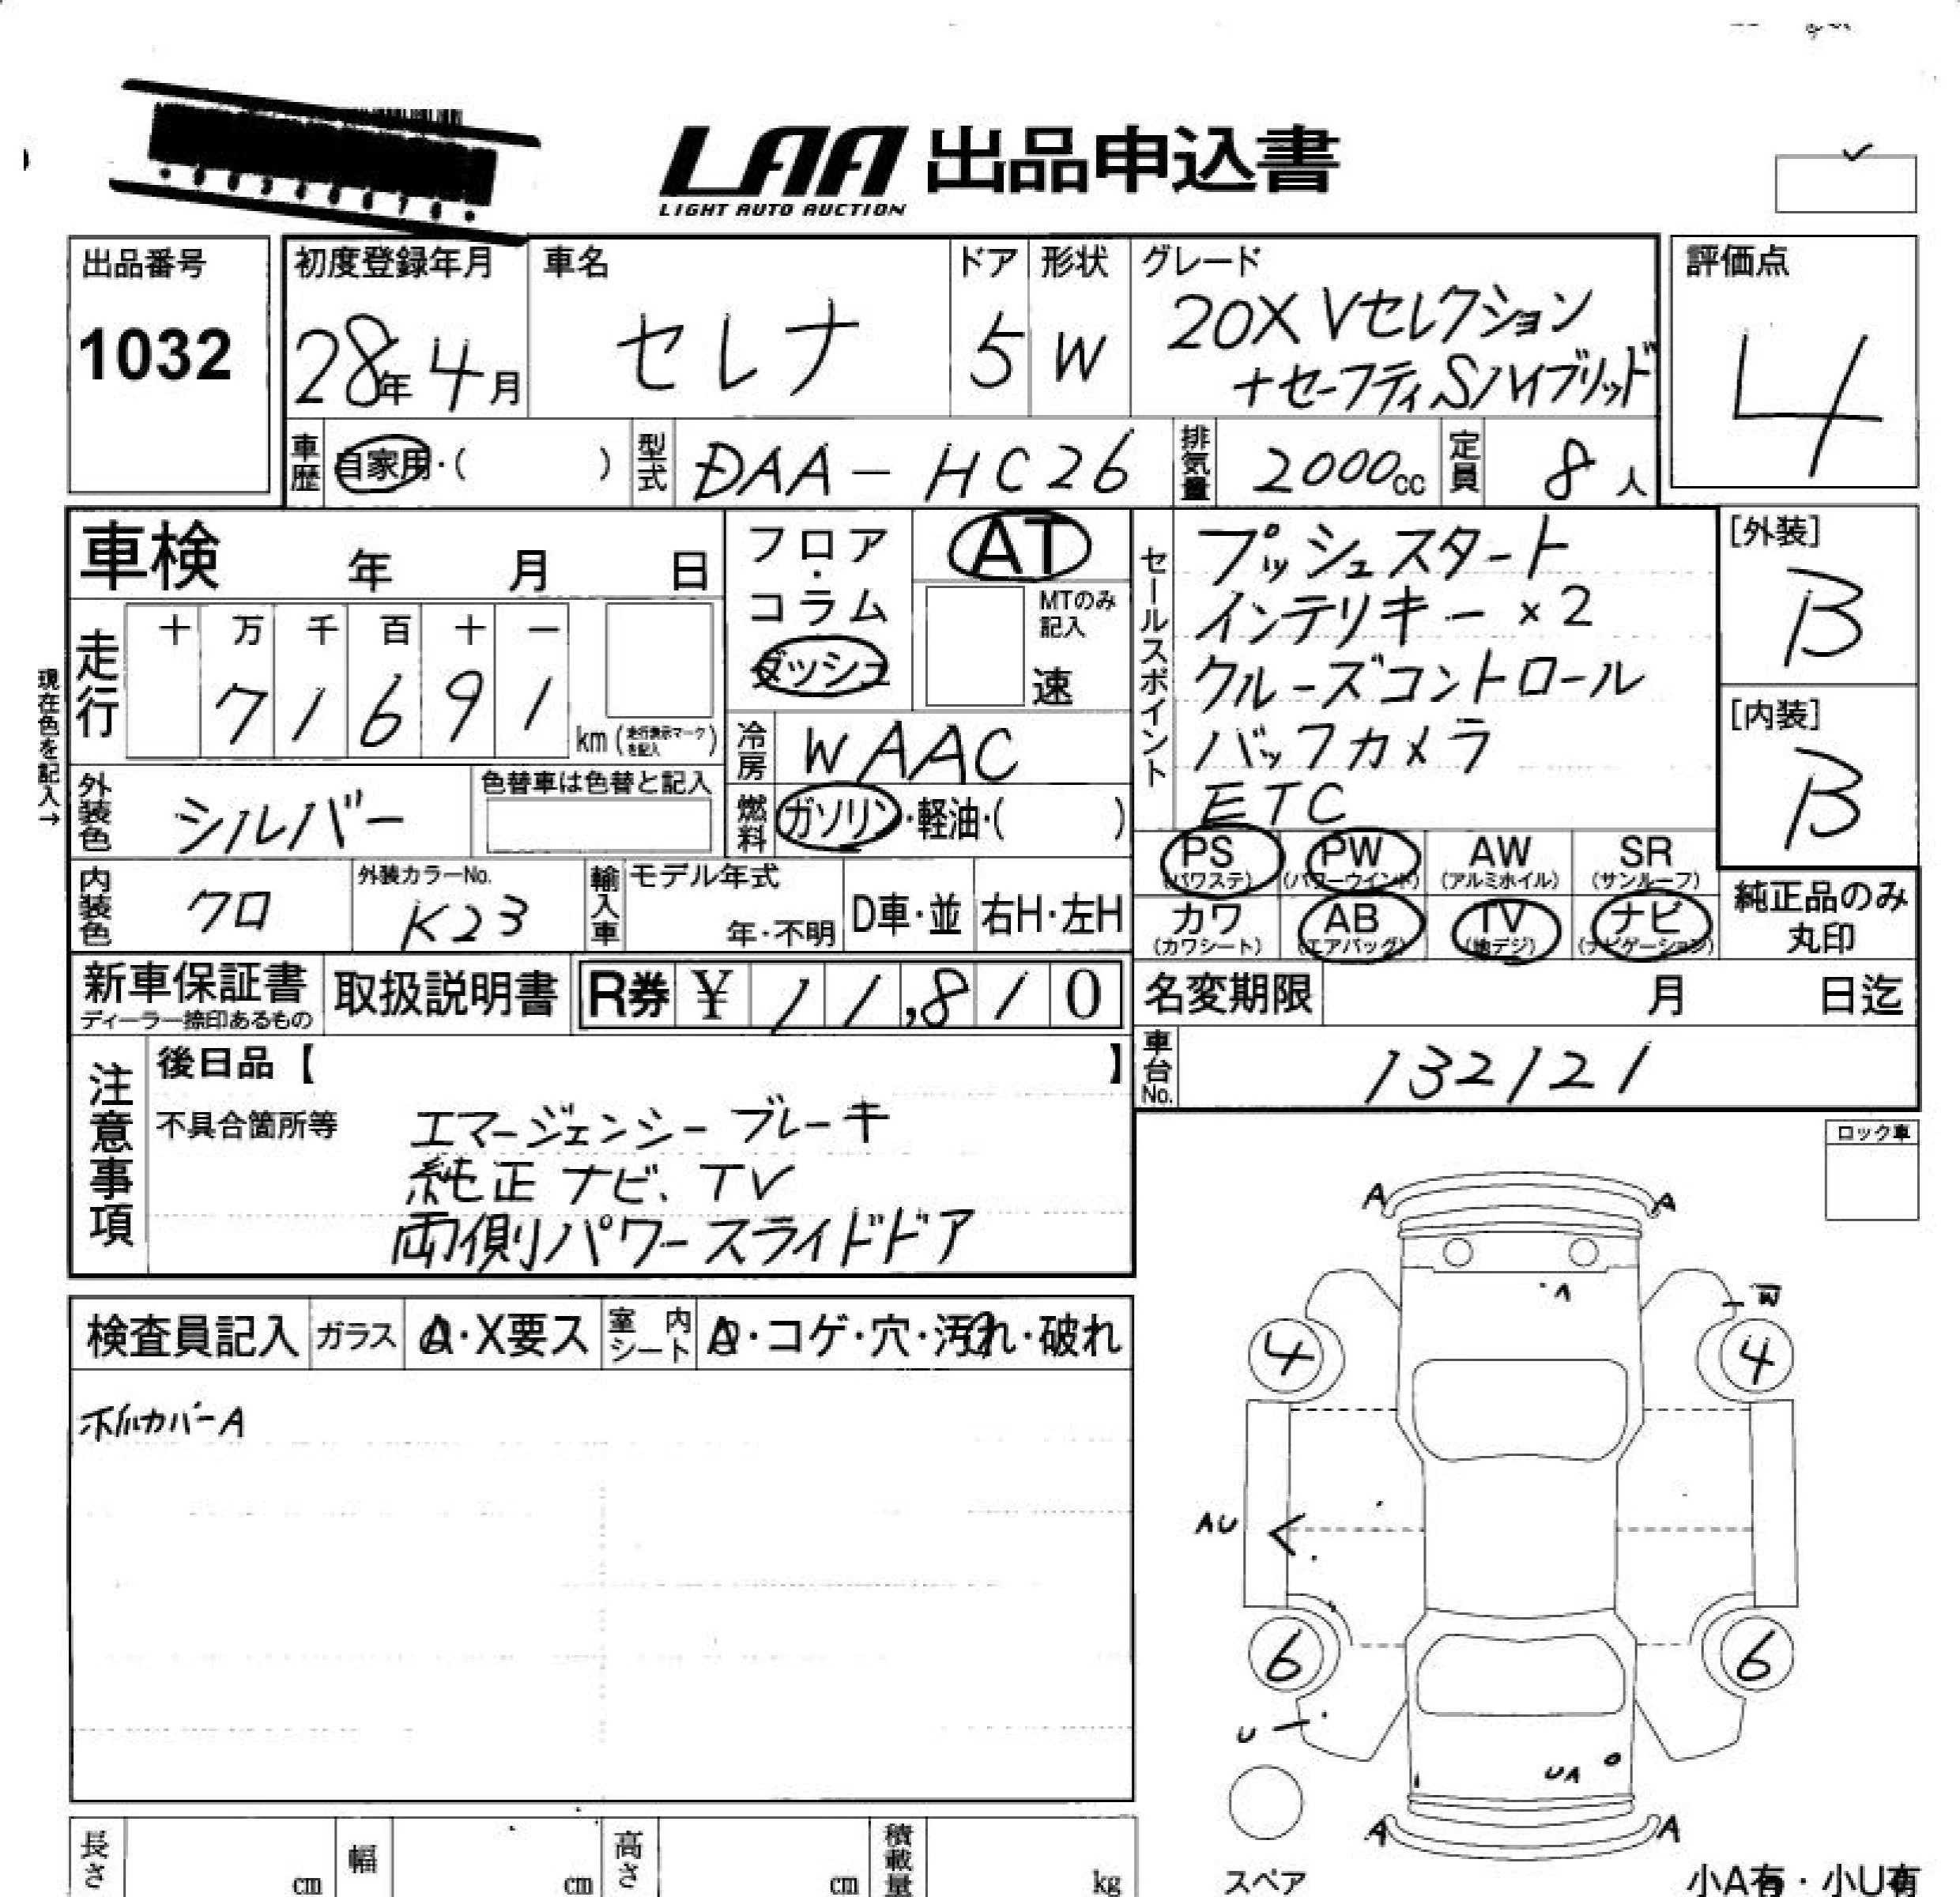 LAA 出品申込書
LIGHT AUTO AUCTION
出品番号
1032
初度登録年月
28年4月
車名
セレナ
ドア
5
形状
W
グレード
20X Vセレクション
+セーフティ Sハイブリッド
評価点
4
車歴
自家用・( )
型式
DAA-HC26
排気量
2000cc
定員
8人
車検 年 月 日
走行
十 万 千 百 十 一
7 1 6 9 1
km (走行表示マークを記入)
現在色を記入→
フロア・コラム
ダッシュ
AT
MTのみ記入
速
冷房
WAAC
燃料
ガソリン・軽油・( )
セールスポイント
プッシュスタート
インテリキー ×2
クルーズコントロール
バックカメラ
ETC
[外装]
B
[内装]
B
外装色
シルバー
色替車は色替と記入
内装色
クロ
外装カラーNo.
K23
輸入車
モデル年式
年・不明
D車・並
右H・左H
PS (パワステ)
PW (パワーウインド)
AW (アルミホイル)
SR (サンルーフ)
カワ (カワシート)
AB (エアバッグ)
TV (地デジ)
ナビ (ナビゲーション)
純正品のみ丸印
新車保証書
ディーラー捺印あるもの
取扱説明書
R券 ¥ 11,810
名変期限 月 日迄
車台No.
132121
注意事項
後日品【 】
不具合箇所等
エマージェンシーブレーキ
純正ナビ、TV
両側パワースライドドア
ロック車
検査員記入
ガラス
A・X要ス
室内シート
・コゲ・穴・汚れ・破れ
ホイルカバーA
A A
A
W
4 4
AU
6 6
U
UA
A A
スペア
小A有・小U有
長さ cm
幅 cm
高さ cm
積載量 kg